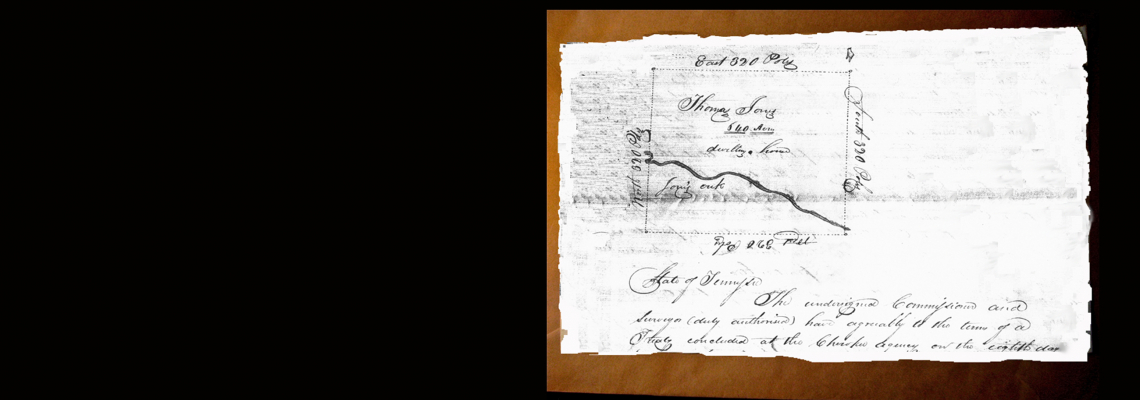 East 320 Poles
Thomas Jones
640 Acres
dwelling house
South 320 Poles
North 320 Poles
State of Tennessee
The undersigned Commissioner and
Surveyor (duly authorised) have agreeably to the terms of a
Treaty concluded at the Cherokee Agency on the eighth day